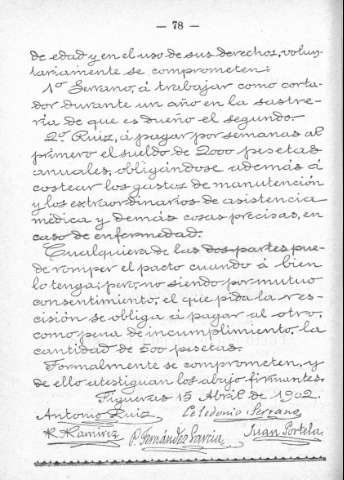 — 78 —
de edad y en el uso de sus derechos, volun-
tariamente se comprometen:
1º Serrano, á trabajar como corta-
dor durante un año en la sastre-
ría de que es dueño el segundo.
2º Ruiz, á pagar por semanas al
primero el sueldo de 2000 pesetas
anuales, obligándose además á
costear los gastos de manutención
y los extraordinarios de asistencia
médica y demás cosas precisas, en
caso de enfermedad.
Cualquiera de las dos partes pue-
de romper el pacto cuando á bien
lo tenga; pero, no siendo por mutuo
consentimiento, el que pida la res-
cisión se obliga á pagar al otro,
como pena de incumplimiento, la
cantidad de 500 pesetas.
Formalmente se comprometen, y
de ello atestiguan los abajo firmantes.
Figueras 15 Abril de 1902.
Antonio Ruiz Celedonio Serrano
R. Ramírez P. Fernández García Juan Portela